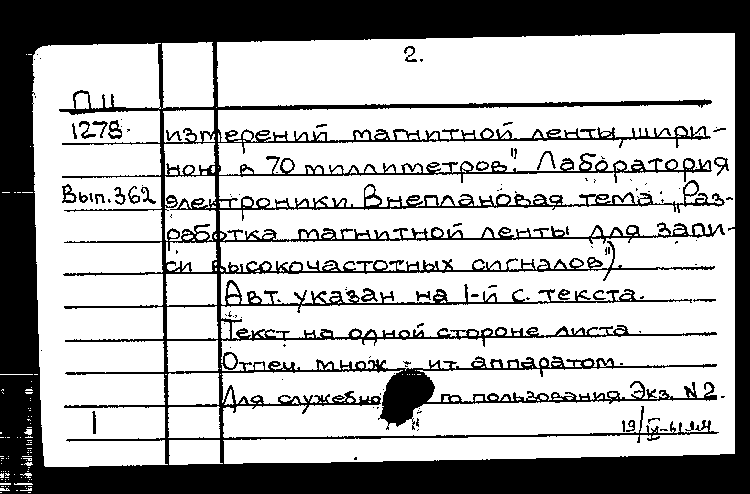 2.
П 11
1278. измерений магнитной ленты, шири-
ною в 70 миллиметров". Лаборатория
Вып. 362 электроники. Внеплановая тема: „Раз-
работка магнитной ленты для запи-
си высокочастотных сигналов").
Авт. указан на 1-й с. текста.
Текст на одной стороне листа.
Отпеч. множ - ит. аппаратом.
Для служебно го пользования. Экз. N 2.
1
19/IX-61